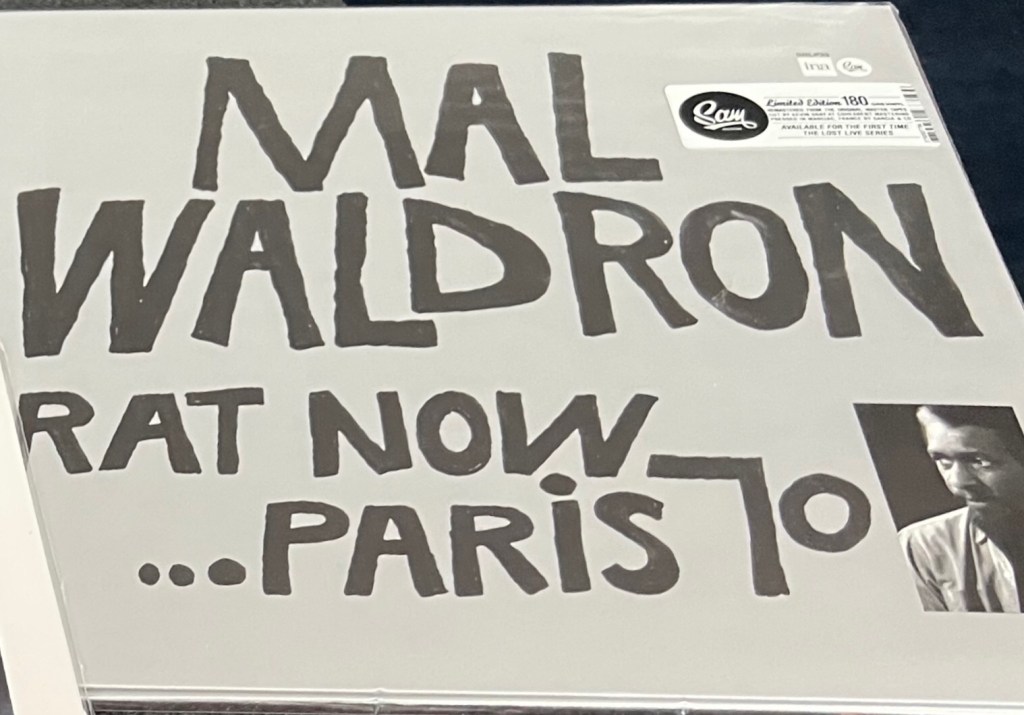 MAL
WALDRON
RAT NOW
...PARiS 70
ina
Sam
Sam
Limited Edition 180
REMASTERED FROM THE ORIGINAL MASTER TAPES
AVAILABLE FOR THE FIRST TIME
THE LOST LIVE SERIES